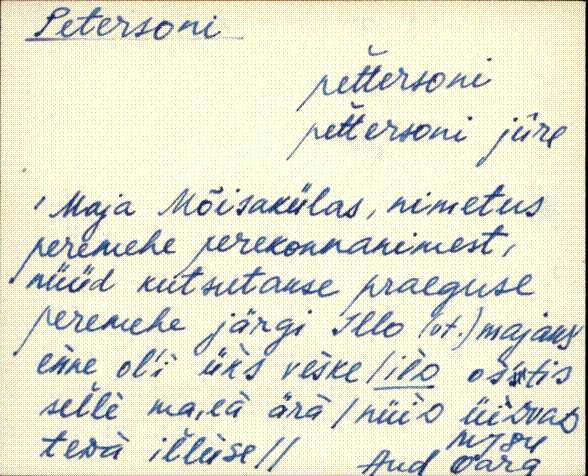 Petersoni
pet̆tersoni
pet̆tersoni jüre
Maja Mõisakülas, nimetus
peremehe perekonnanimest,
nüüd kutsutakse praeguse
peremehe järgi Illo (vt.) majaks
enne ol'i üks veske / ilo
selle ma.ea ärä / nüid
teda
And